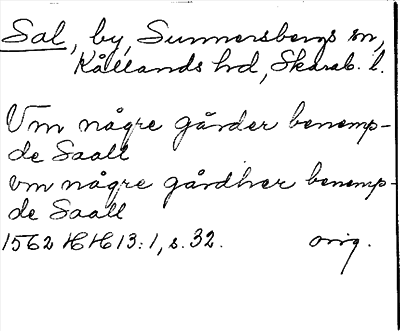 Sal, by, Sunnersbergs sn,
Kållands hd, Skarab. l.
Vm någre gårder benemp-
de Saall
vm någre gårdher benemp-
de Saall
1562 HH 13:1, s. 32. orig.